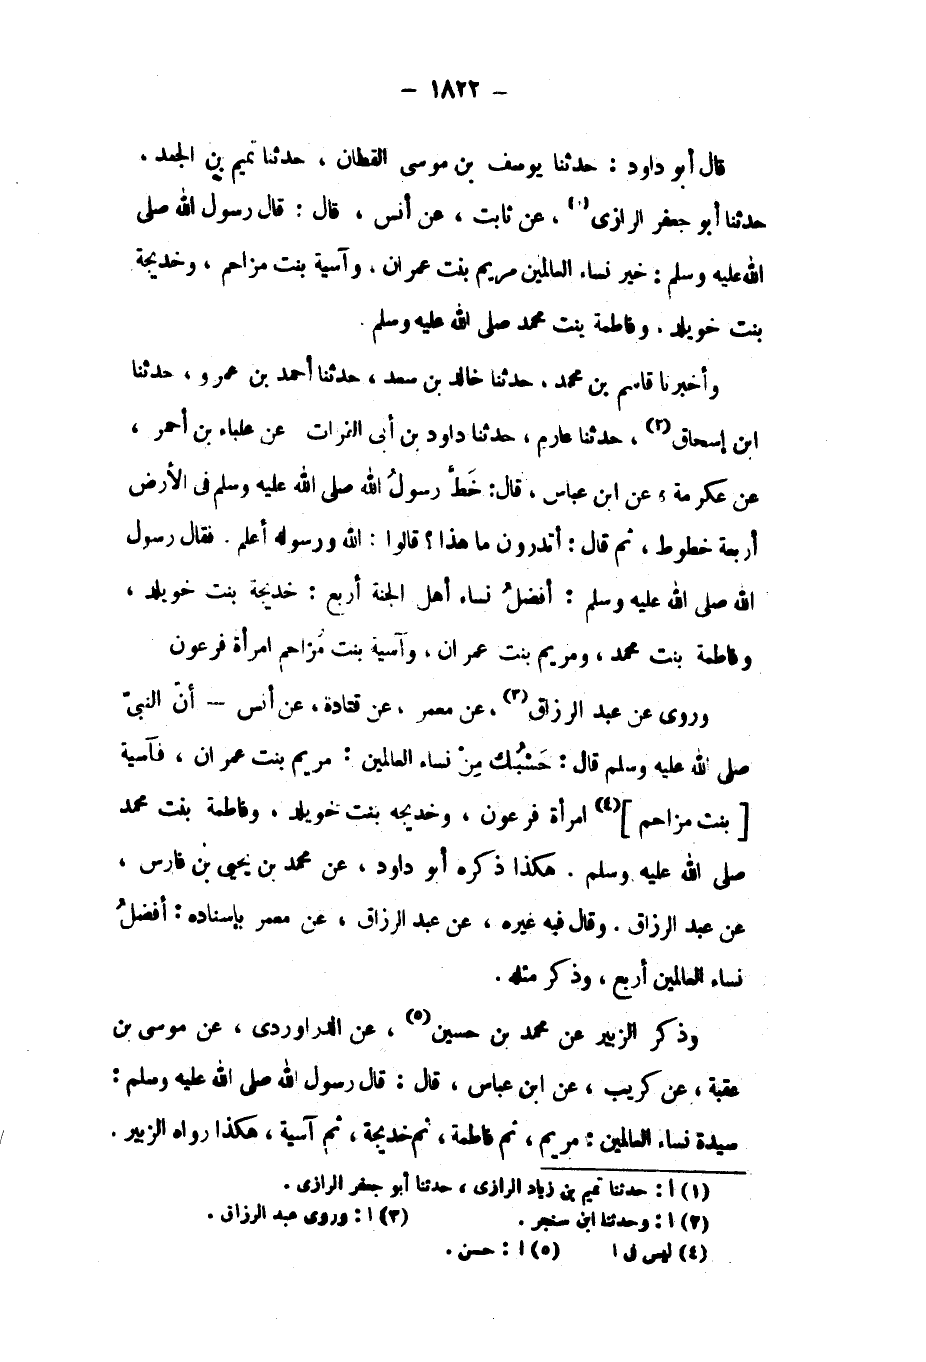 – ١٨٢٢ –
قال أبو داود : حدثنا يوسف بن موسى القطان ، حدثنا تميم بن الجعد ،
حدثنا أبو جعفر الرازى(١) ، عن ثابت ، عن أنس ، قال : قال رسول الله صلى
الله عليه وسلم : خير نساء العالمين مريم بنت عمران ، وآسية بنت مزاحم ، وخديجة
بنت خويلد ، وفاطمة بنت محمد صلى الله عليه وسلم .
وأخبرنا قاسم بن محمد ، حدثنا خالد بن سعد ، حدثنا أحمد بن عمرو ، حدثنا
ابن إسحاق(٢) ، حدثنا عارم ، حدثنا داود بن أبى الفرات عن علباء بن أحمر ،
عن عكرمة ، عن ابن عباس ، قال : خَطَّ رسولُ الله صلى الله عليه وسلم فى الأرض
أربعة خطوط ، ثم قال : أتدرون ما هذا ؟ قالوا : الله ورسوله أعلم . فقال رسول
الله صلى الله عليه وسلم : أفضلُ نساء أهل الجنة أربع : خديجة بنت خويلد ،
وفاطمة بنت محمد ، ومريم بنت عمران ، وآسية بنت مُزاحم امرأة فرعون
وروى عن عبد الرزاق(٣) ، عن معمر ، عن قتادة ، عن أنس – أنّ النبىّ
صلى الله عليه وسلم قال : حَسْبُك مِنْ نساء العالمين : مريم بنت عمران ، فآسية
[ بنت مزاحم ](٤) امرأة فرعون ، وخديجه بنت خويلد ، وفاطمة بنت محمد
صلى الله عليه وسلم . هكذا ذكره أبو داود ، عن محمد بن يحيى بن فارس ،
عن عبد الرزاق . وقال فيه غيره ، عن عبد الرزاق ، عن معمر بإسناده : أفضلُ
نساء العالمين أربع ، وذكر مثله .
وذكر الزبير عن محمد بن حسين(٥) ، عن الدراوردى ، عن موسى بن
عقبة ، عن كريب ، عن ابن عباس ، قال : قال رسول الله صلى الله عليه وسلم :
سيدة نساء العالمين : مريم ، ثم فاطمة ، ثم خديجة ، ثم آسية ، هكذا رواه الزبير .
(١) ا : حدثنا تميم بن زياد الرازى ، حدثنا أبو جعفر الرازى .
(٢) ا : وحدثنا ابن سنجر . (٣) ا : وروى عبد الرزاق .
(٤) ليس فى ا (٥) ا : حسن .